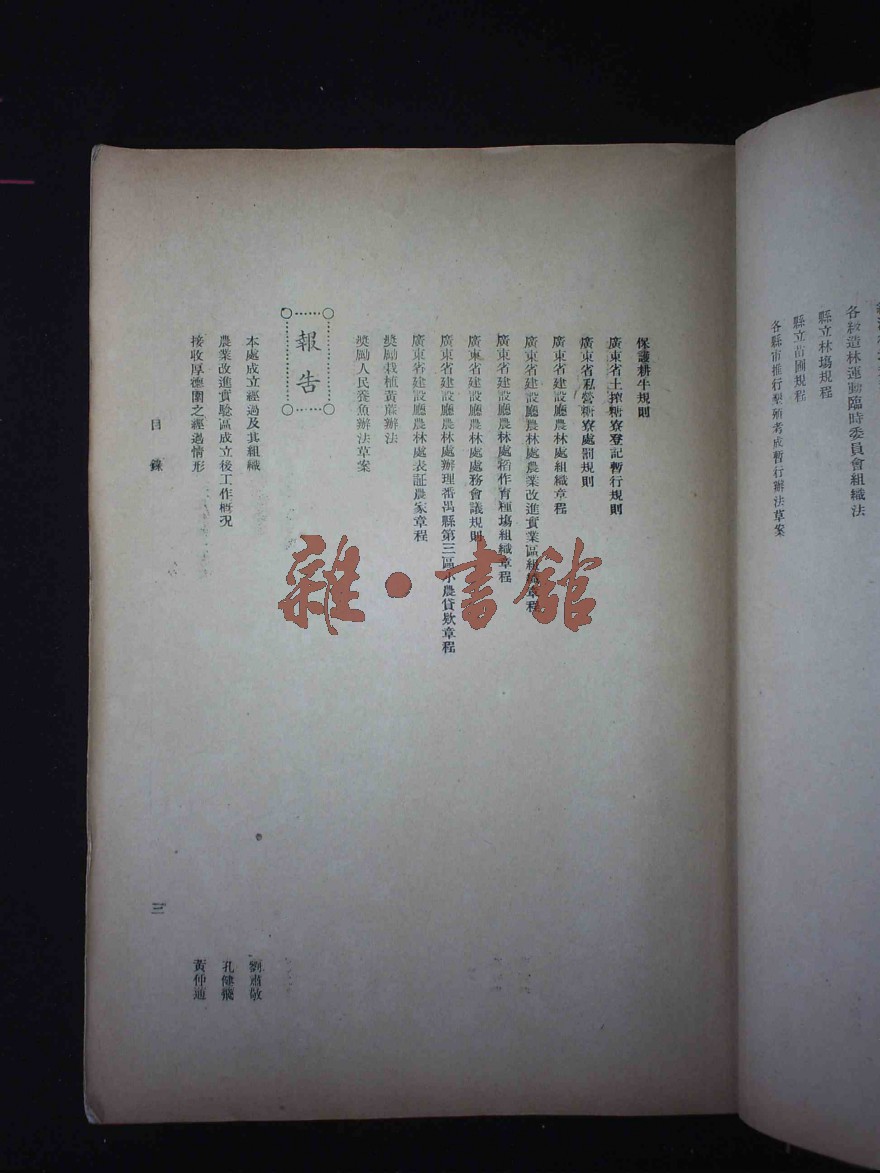 各級造林運動臨時委員會組織法
縣立林塲規程
縣立苗圃規程
各縣市推行墾殖考成暫行辦法草案
保護耕牛規則
廣東省土搾糖寮登記暫行規則
廣東省私營糖寮處罰規則
廣東省建設廳農林處組織章程
廣東省建設廳農林處農業改進實業區組織章程
廣東省建設廳農林處稻作育種塲組織章程
廣東省建設廳農林處處務會議規則
廣東省建設廳農林處辦理番禺縣第三區小農貸欵章程
廣東省建設廳農林處表証農家章程
奬勵栽植黃蔴辦法
奬勵人民養魚辦法草案
報告
本處成立經過及其組織 劉肅敬
農業改進實驗區成立後工作概况 孔健飛
接收厚德圍之經過情形 黃仲通
目錄
三
雜·書館